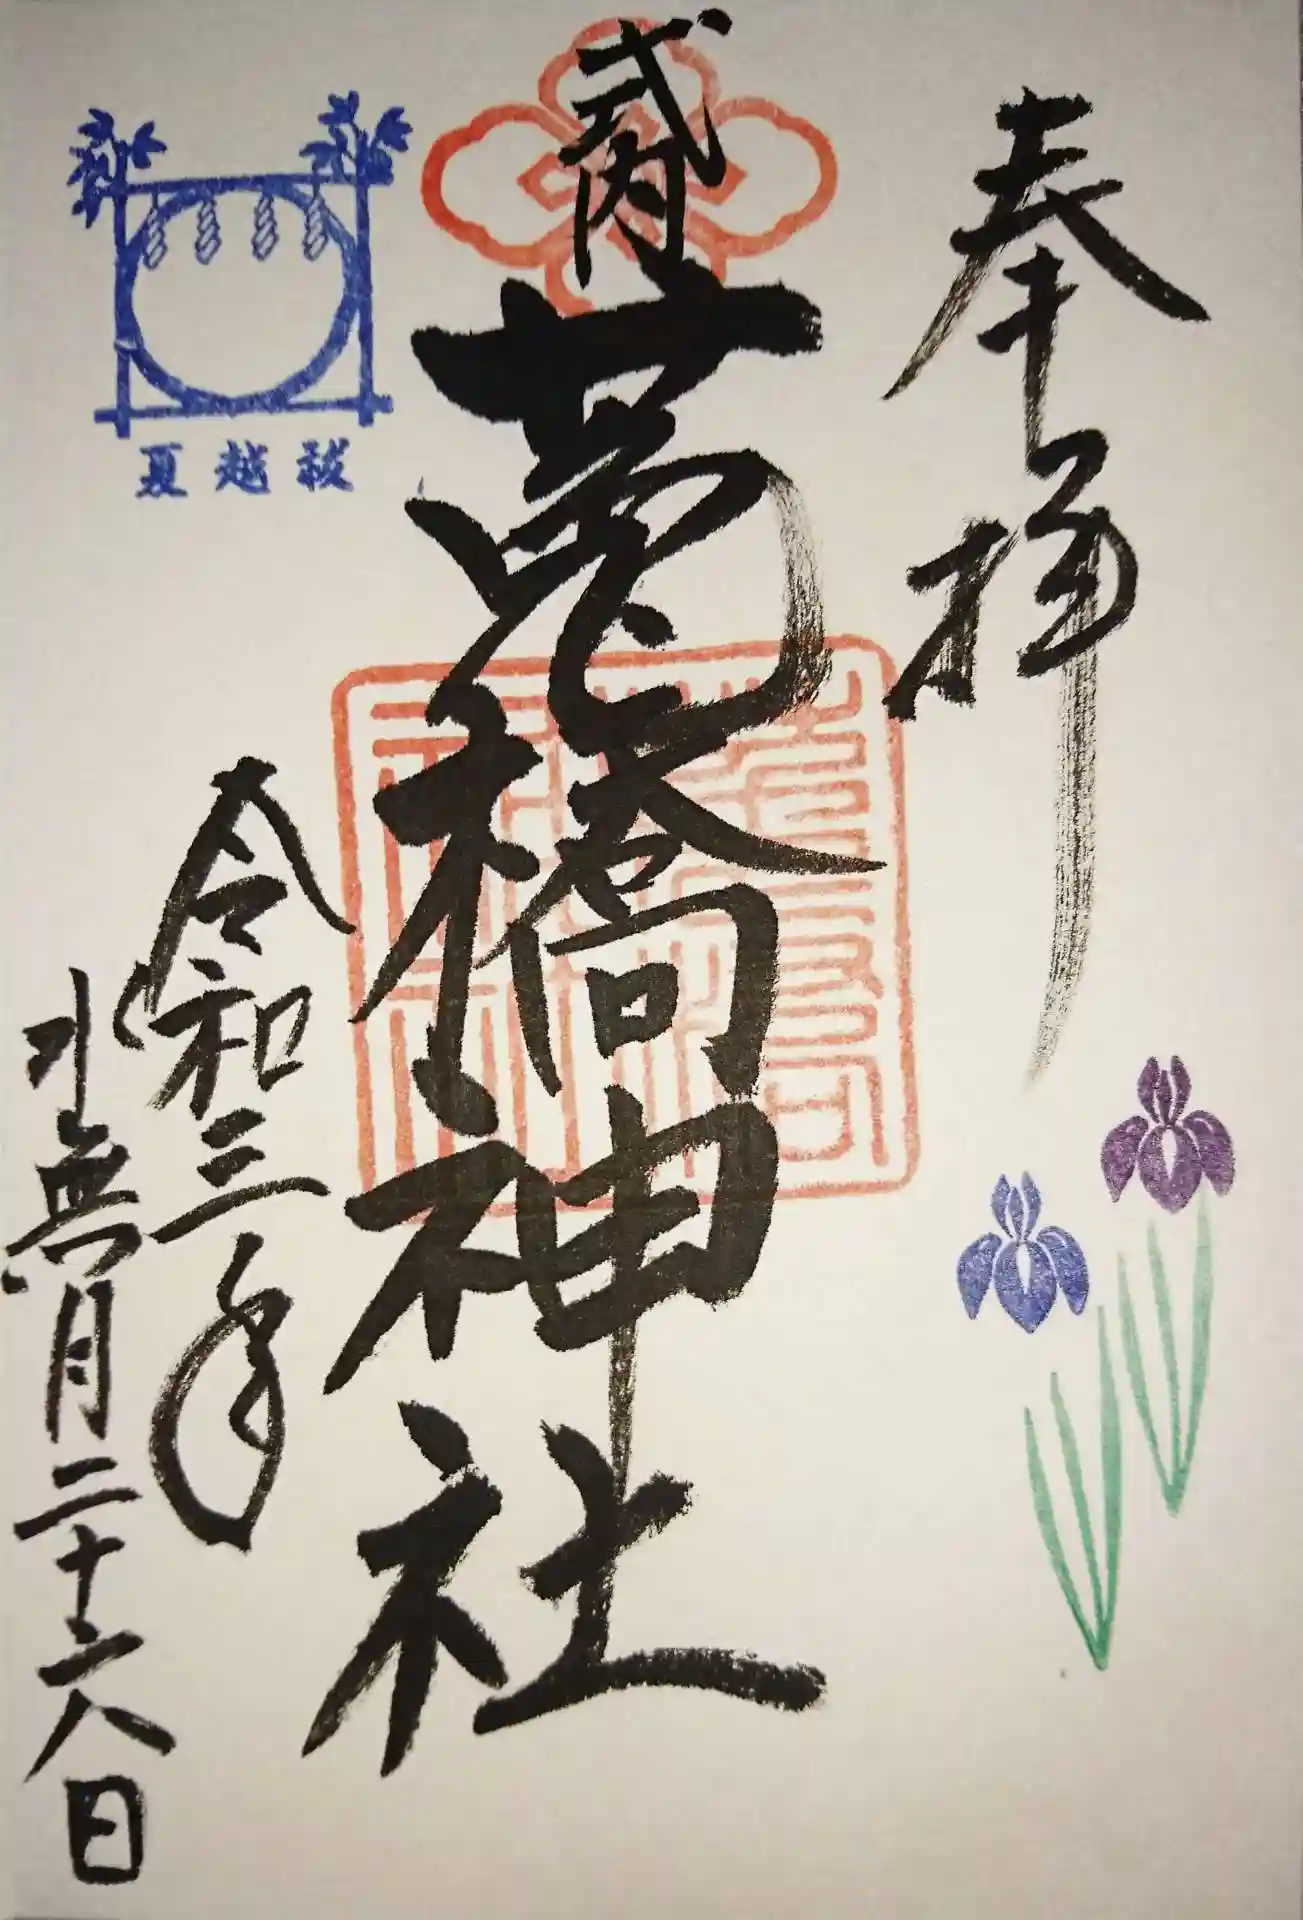 奉拝
式内
莵橋神社
令和三年
水無月二十六日
夏越祓